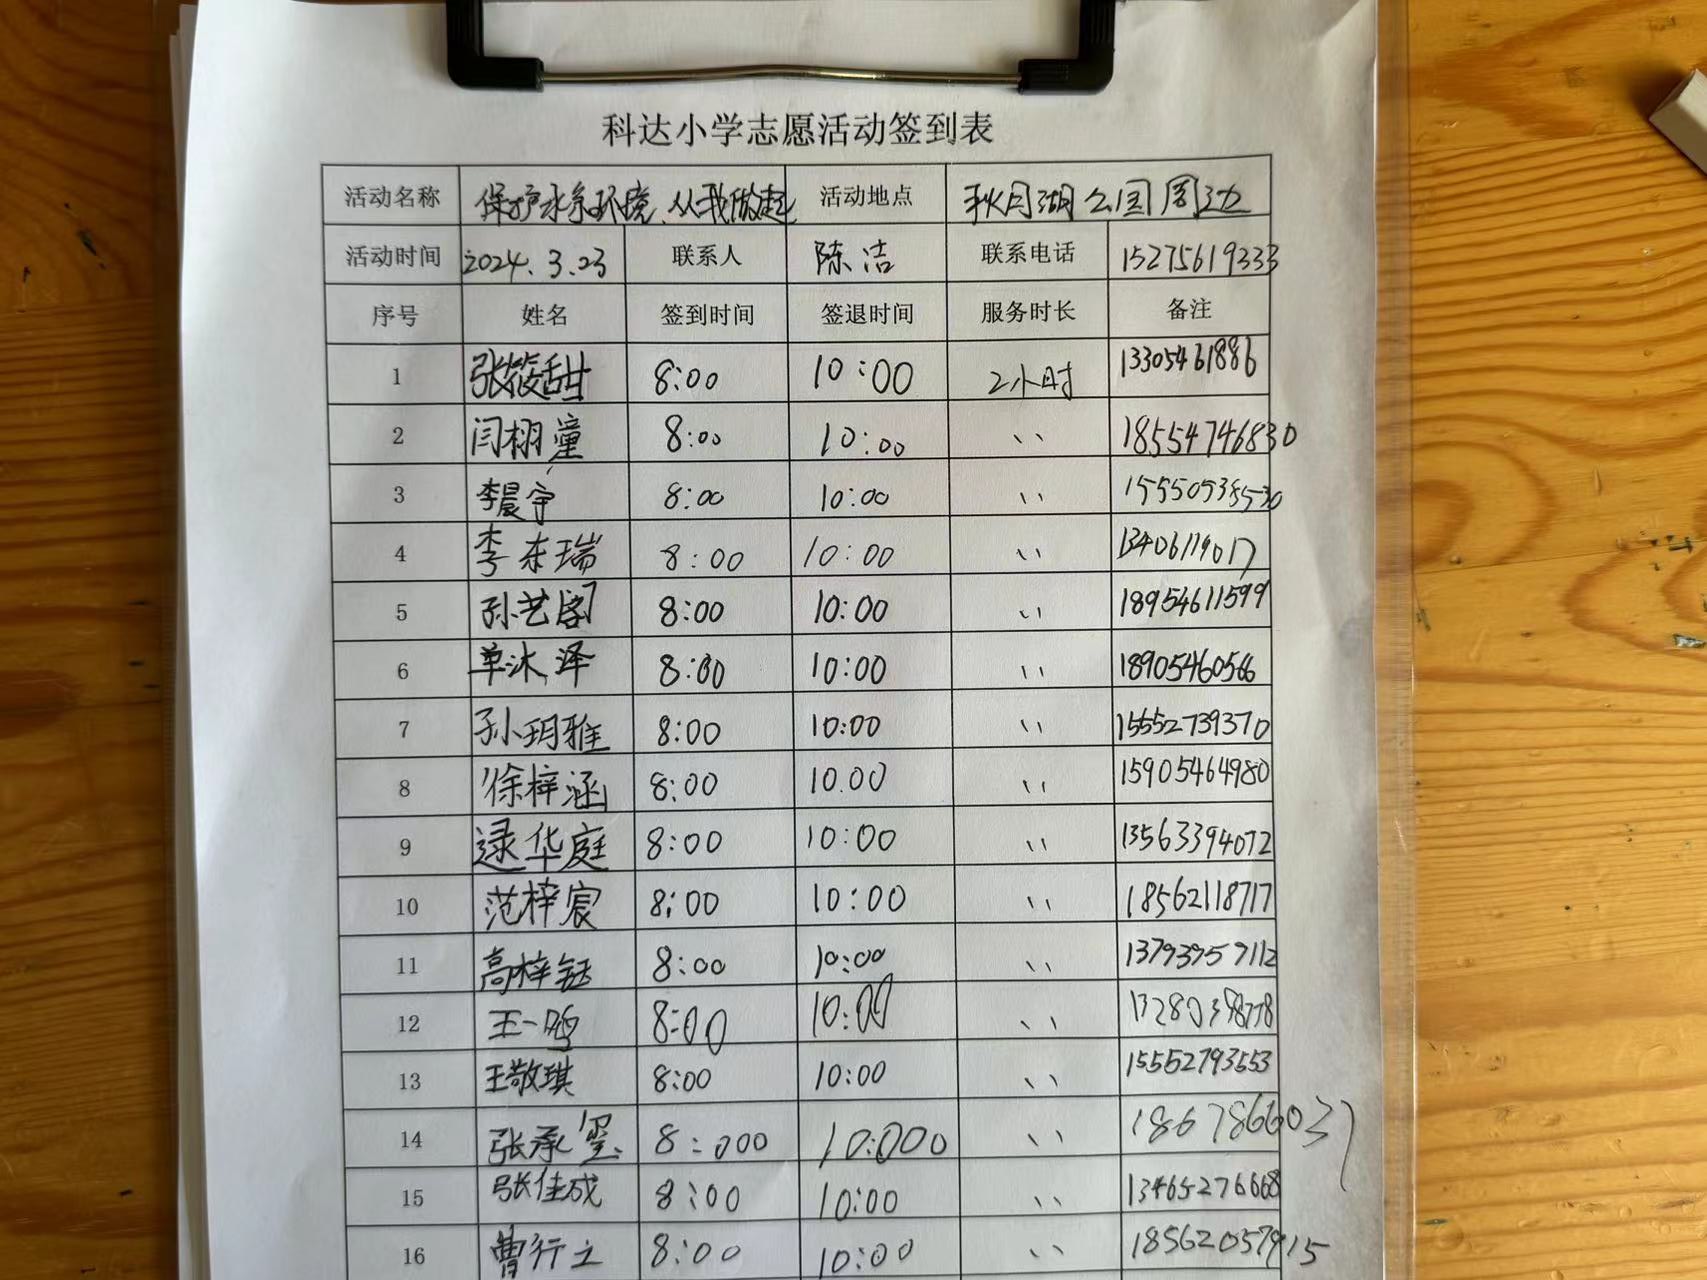 科达小学志愿活动签到表
活动名称 保护水系环境、从我做起 活动地点 秋月湖公园周边
活动时间 2024.3.23 联系人 陈洁 联系电话 15275619333
序号 姓名 签到时间 签退时间 服务时长 备注
1 张筱甜 8:00 10:00 2小时 13305461886
2 闫栩潼 8:00 10:00 〃 18554746830
3 李晨宇 8:00 10:00 〃 15550538530
4 李东瑞 8:00 10:00 〃 13406119017
5 孙艺阁 8:00 10:00 〃 18954611599
6 单沐泽 8:00 10:00 〃 18905460566
7 孙玥雅 8:00 10:00 〃 15552739370
8 徐梓涵 8:00 10.00 〃 15905464980
9 逯华庭 8:00 10:00 〃 13563394072
10 范梓宸 8:00 10:00 〃 18562118717
11 高梓钰 8:00 10:00 〃 13793959112
12 王一鸣 8:00 10:00 〃
13 王敬琪 8:00 10:00 〃 15552793553
14 张承 8:000 10:000 〃 1867866037
15 张佳成 8:00 10:00 〃 13465276668
16 曹行之 8:00 10:00 〃 18562057915